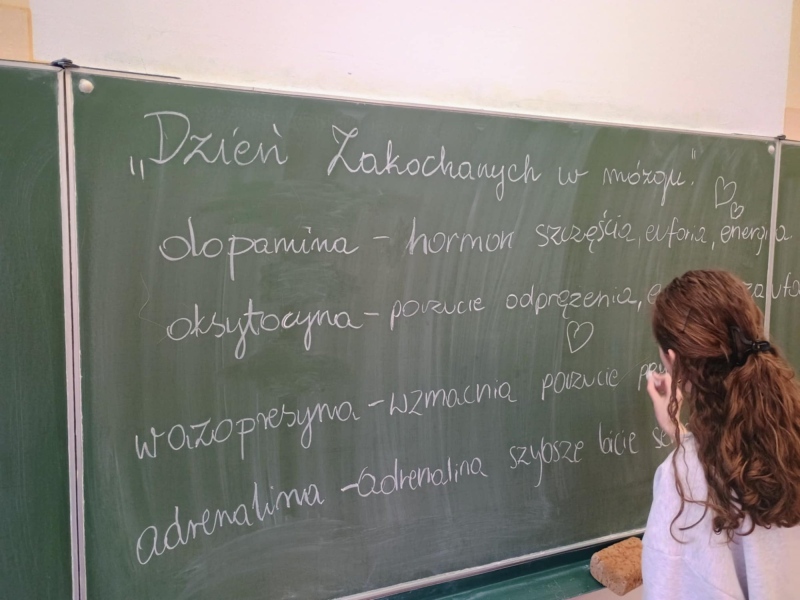 „Dzień Zakochanych w mózgu"
dopamina - hormon szczęścia, eufonia, energia
oksytocyna - poczucie odprężenia,
wazopresyna - wzmacnia poczucie
adrenalina - adrenalina szybsze bicie